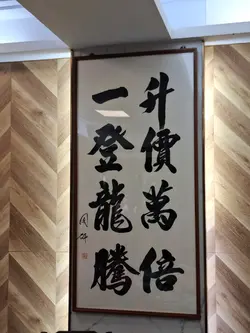 升價萬倍
一登龍騰